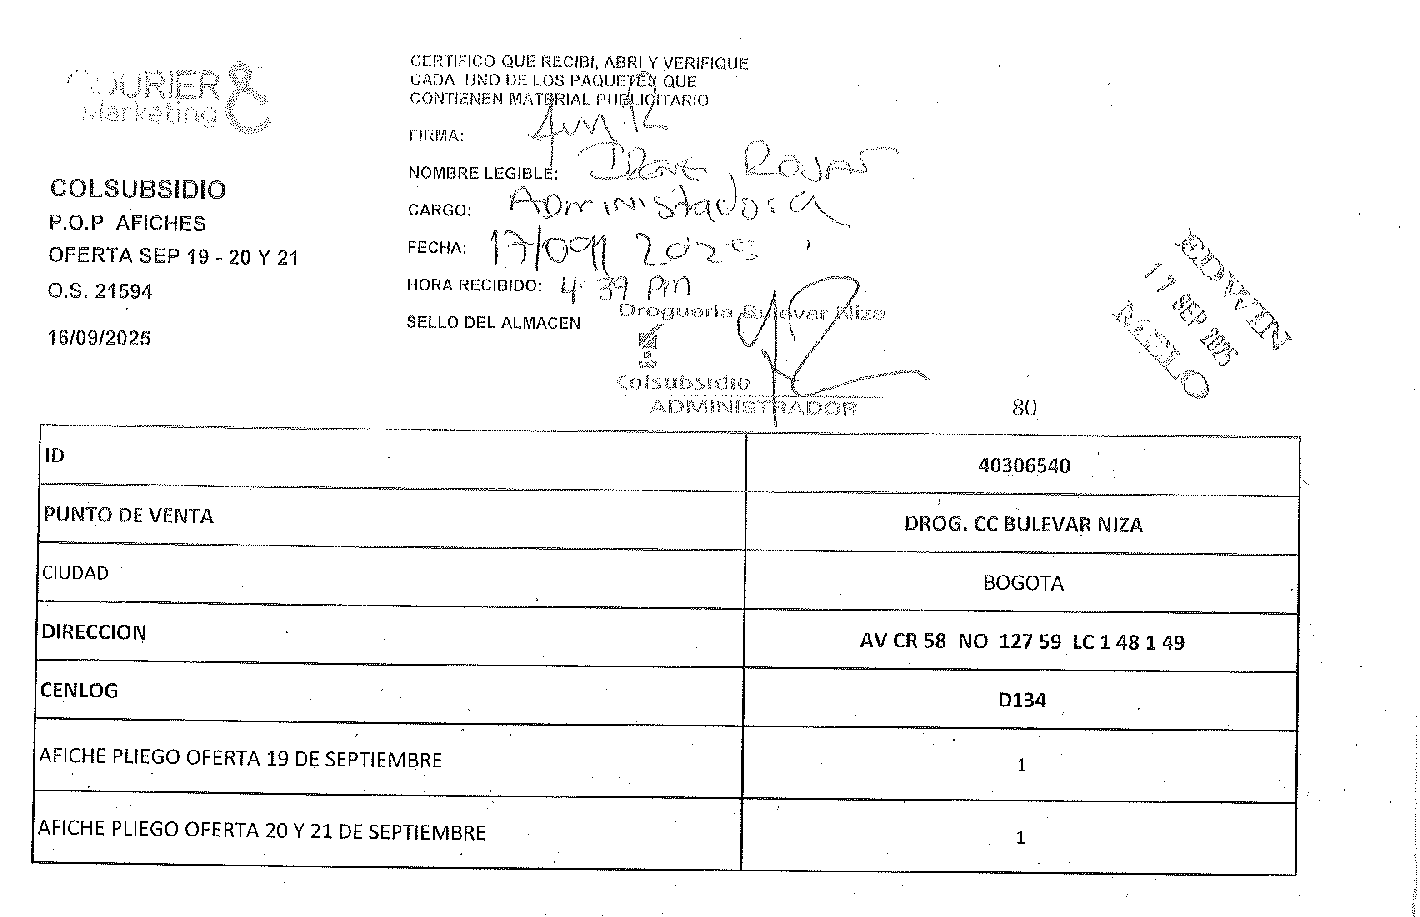 COURIER
Marketing
COLSUBSIDIO
P.O.P AFICHES
OFERTA SEP 19 - 20 Y 21
O.S. 21594
16/09/2025
CERTIFICO QUE RECIBI, ABRI Y VERIFIQUE
CADA UNO DE LOS PAQUETES QUE
CONTIENEN MATERIAL PUBLICITARIO
FIRMA:
NOMBRE LEGIBLE: Rojas
CARGO: Administradora
FECHA: 17/09/2025
HORA RECIBIDO: 4:39 pm
SELLO DEL ALMACEN
Drogueria Bulevar Niza
Colsubsidio
ADMINISTRADOR
EDWIN
17 SEP 2025
MELO
80
ID 40306540
PUNTO DE VENTA DROG. CC BULEVAR NIZA
CIUDAD BOGOTA
DIRECCION AV CR 58 NO 127 59 LC 1 48 1 49
CENLOG D134
AFICHE PLIEGO OFERTA 19 DE SEPTIEMBRE 1
AFICHE PLIEGO OFERTA 20 Y 21 DE SEPTIEMBRE 1